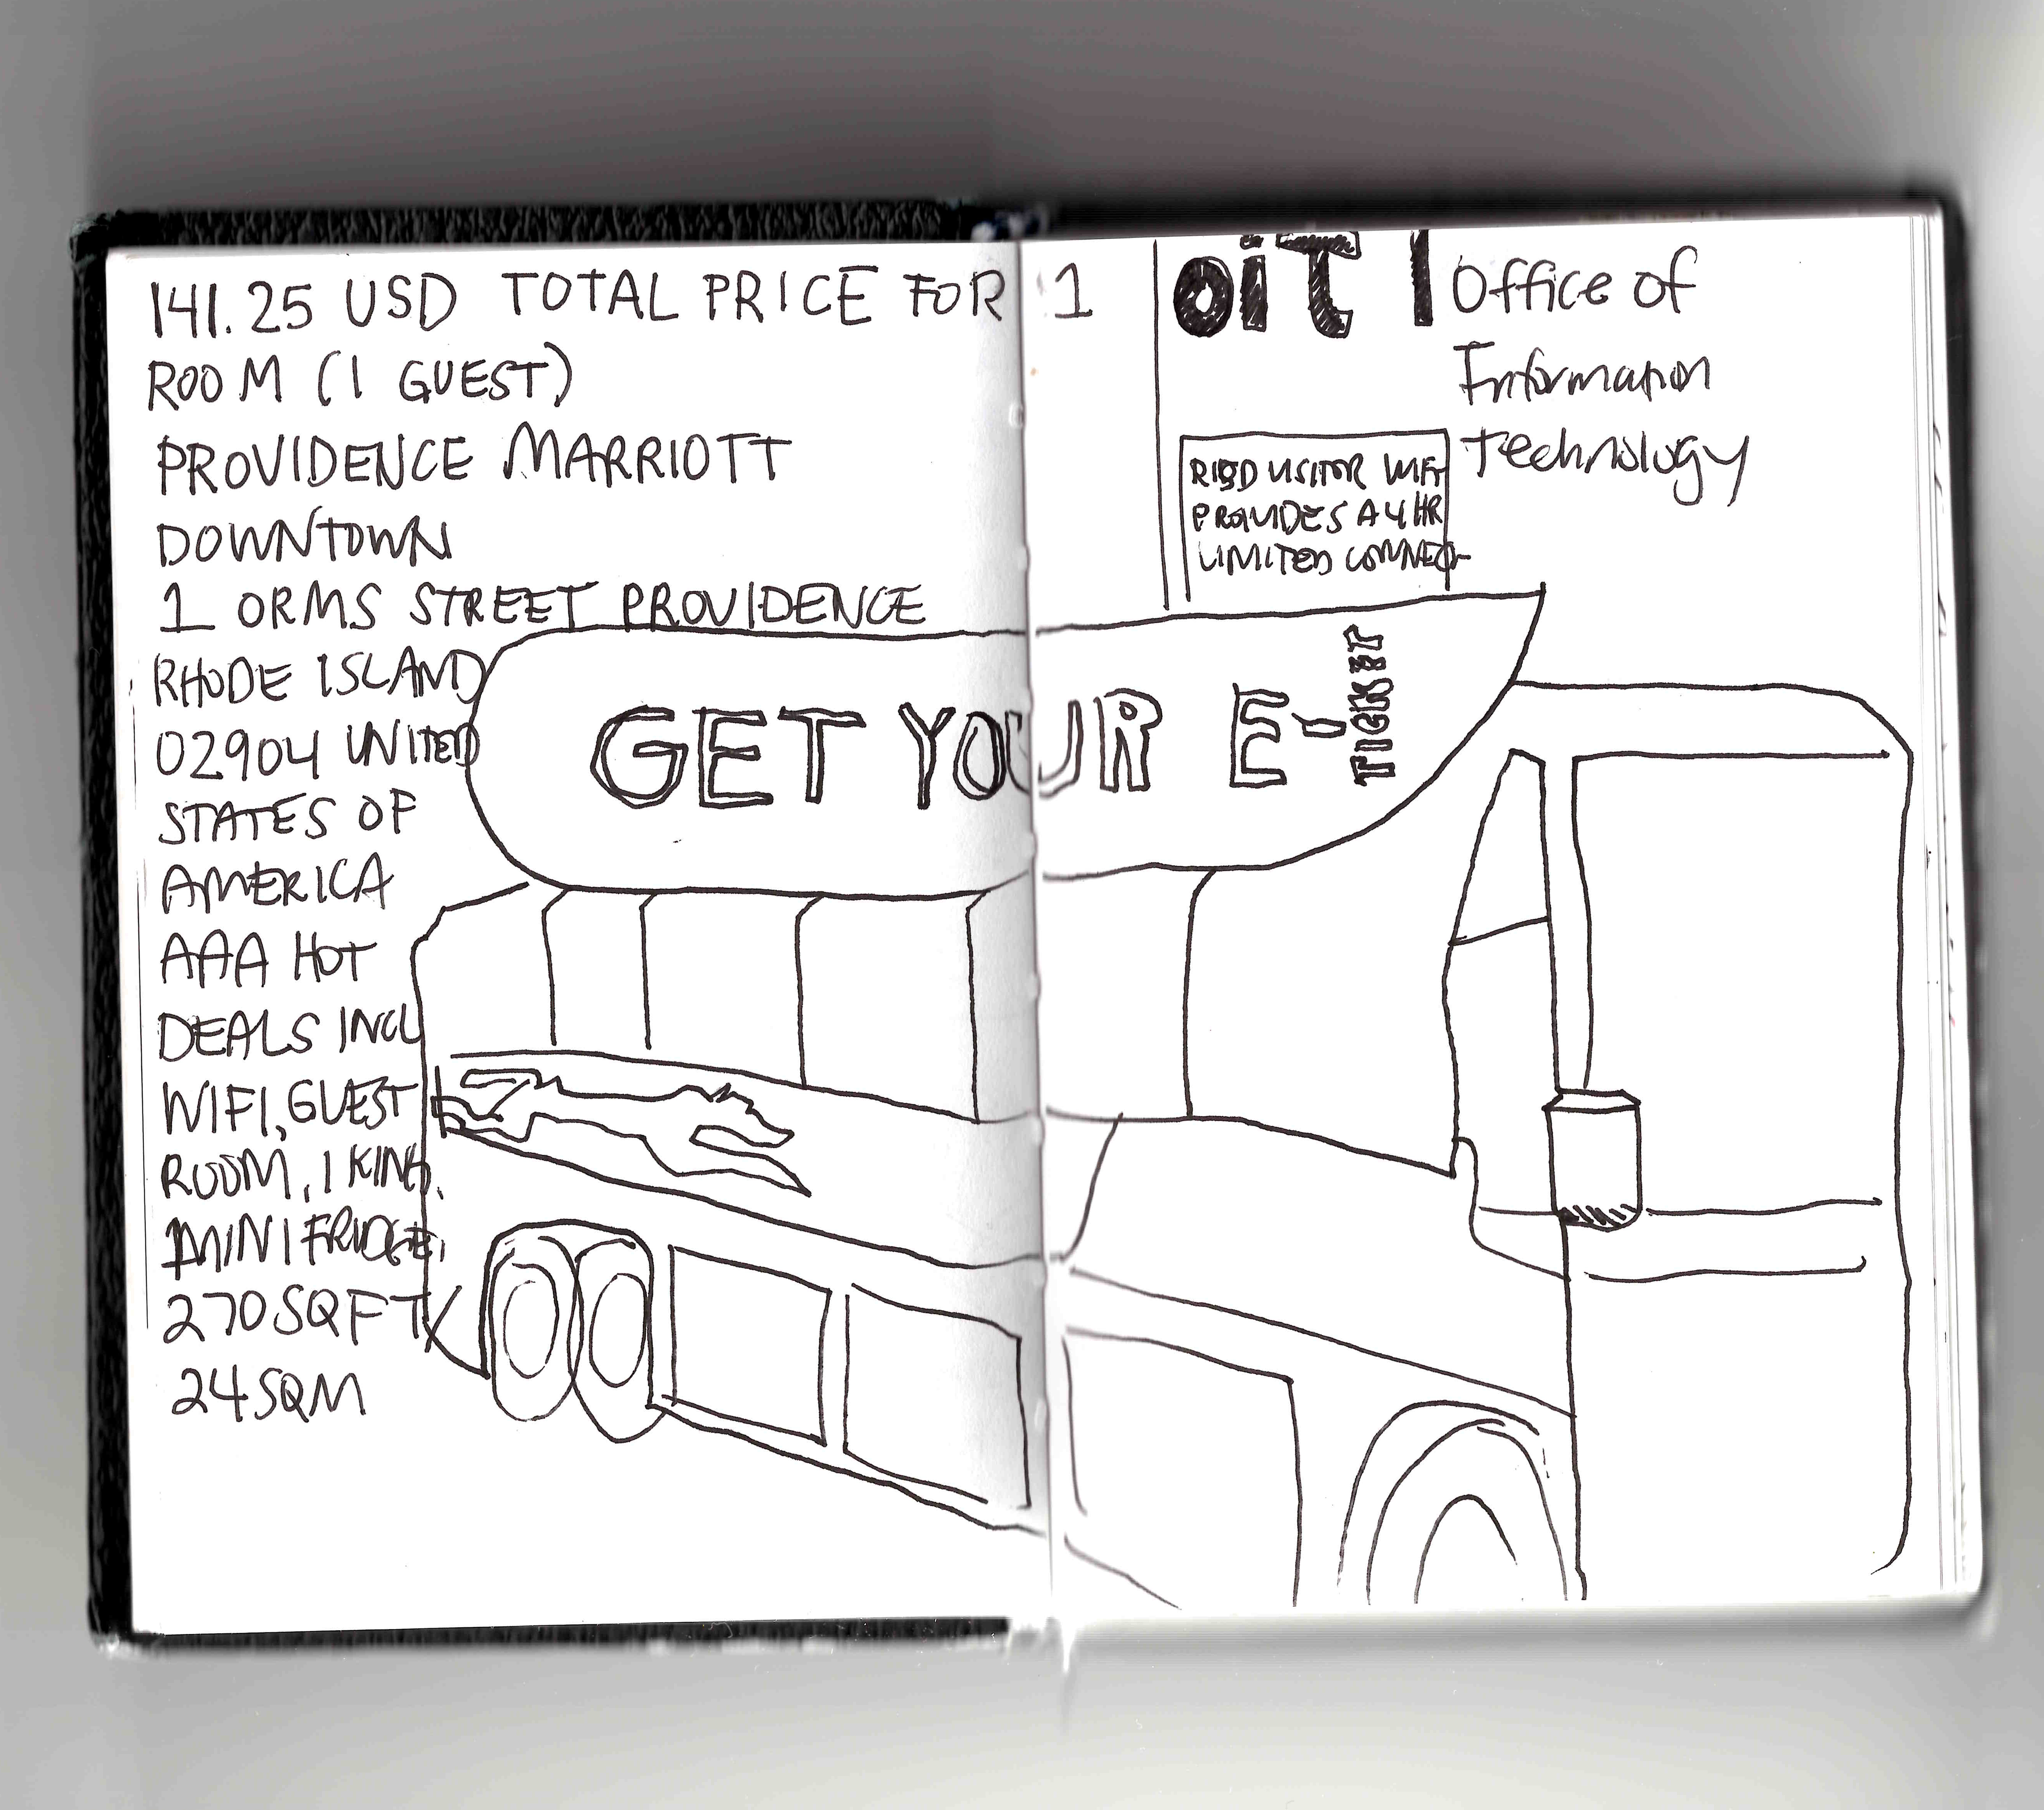 141.25 USD TOTAL PRICE FOR 1
ROOM (1 GUEST)
PROVIDENCE MARRIOTT
DOWNTOWN
1 ORMS STREET PROVIDENCE
RHODE ISLAND
02904 UNITED
STATES OF
AMERICA
AAA HOT
DEALS INCL
WIFI, GUEST
ROOM, 1 KING,
MINI FRIDGE,
270SQFT/
24SQM
oiT | Office of
Information
Technology
RISD VISITOR WIFI
PROVIDES A 4 HR
LIMITED CONNEC-
GET YOUR E-
TICKET